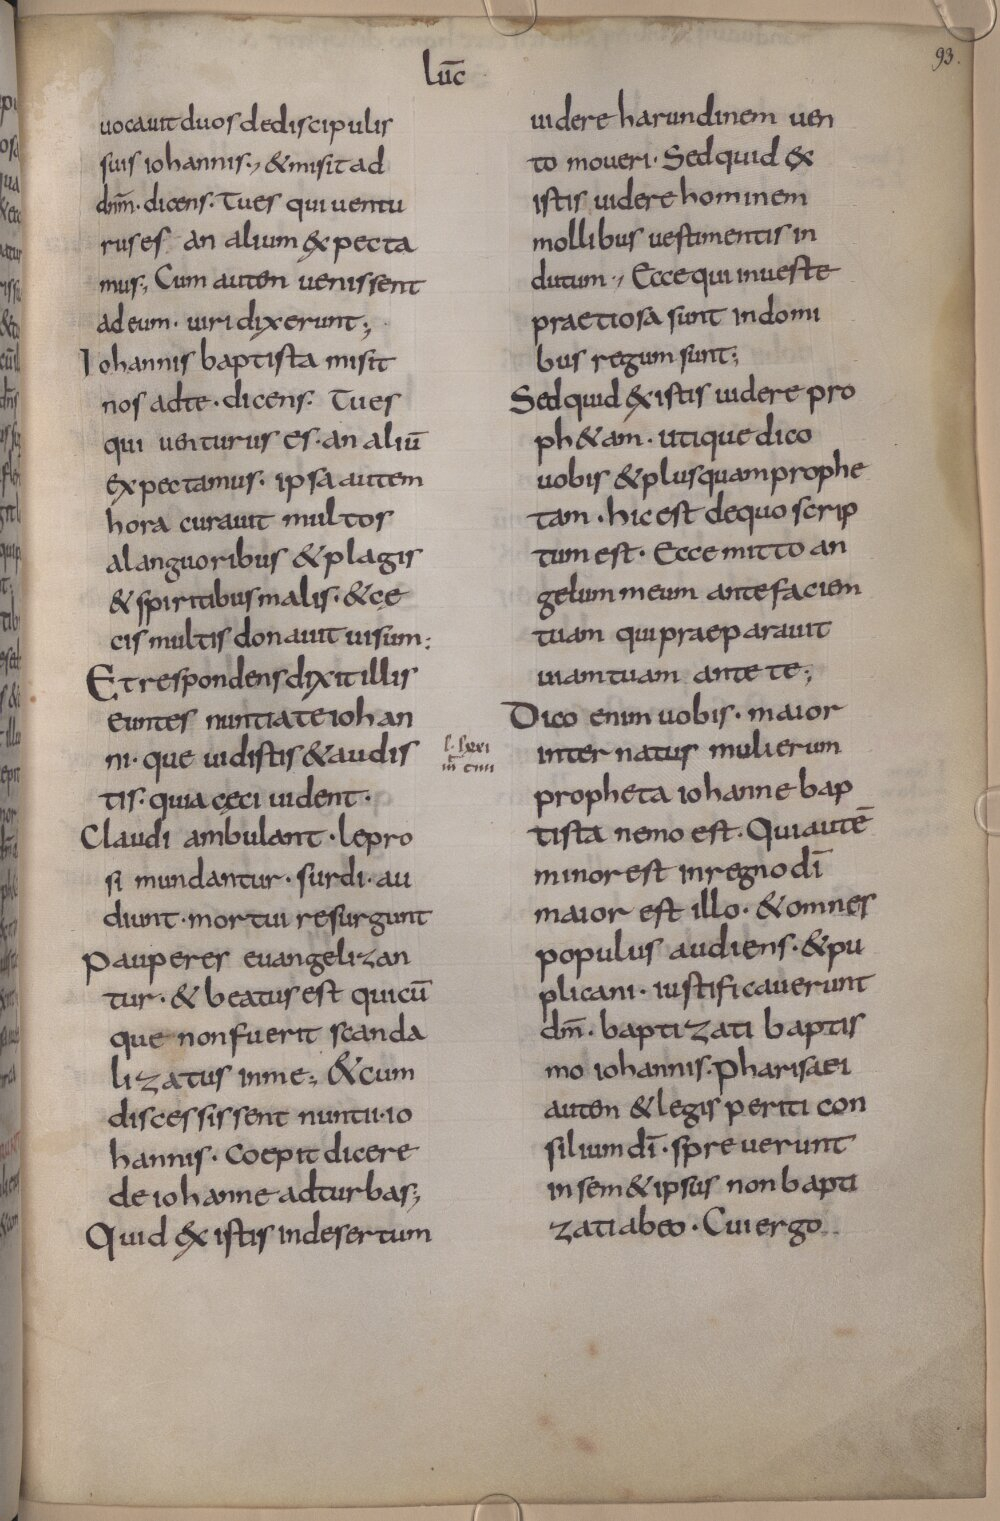 lūc
93.
uocauit duos de discipulis
suis iohannis·, & misit ad
dn̄m· dicens· Tu es qui uentu
rus es an alium expecta
mus·, Cum autem uenissent
ad eum· uiri dixerunt;
Iohannis baptista misit
nos ad te· dicens· Tu es
qui uenturus es· an aliū
expectamus· ipsa autem
hora curauit multos
a languoribus & plagis
& spiritibus malis· & cę
cis multis donauit uisum:
Et respondens dixit illis
euntes nuntiate iohan
ni· que uidistis & audis
tis· quia cęci uident·
Claudi ambulant· lepro
si mundantur· surdi· au
diunt· mortui resurgunt
Pauperes euangelizan
tur· & beatus est quicū
que non fuerit scanda
lizatus in me; & cum
discessissent nuntii· io
hannis· Coepit dicere
de iohanne ad turbas;
Quid existis in desertum
uidere harundinem uen
to moueri· Sed quid ex
istis uidere hominem
mollibus uestimentis in
dutum·, Ecce qui in ueste
praetiosa sunt in domi
bus regum sunt;
Sed quid existis uidere pro
ph&am· utique dico
uobis & plus quam prophe
tam· hic est de quo scrip
tum est· Ecce mitto an
gelum meum ante faciem
tuam qui praeparauit
uiam tuam ante te;
Dico enim uobis· maior
inter natus mulierum
propheta iohanne bap
tista nemo est· Qui autē
minor est in regno dī
maior est illo· & omnes
populus audiens· & pu
plicani· iustificauerunt
dm̄· baptizati baptis
mo iohannis· Pharisaei
autem & legis periti con
silium dī· spreuerunt
in sem&ipsus non bapti
zati ab eo· Cui ergo